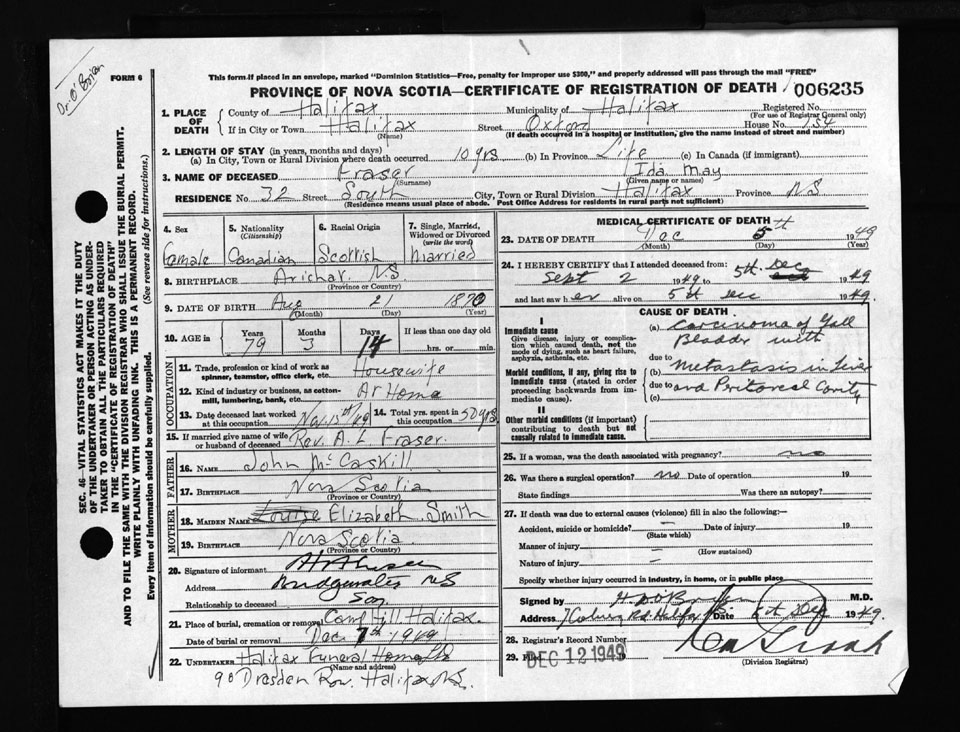 Dr. O'Brien
FORM 6
This form if placed in an envelope, marked "Dominion Statistics—Free, penalty for improper use $300," and properly addressed will pass through the mail "FREE"
PROVINCE OF NOVA SCOTIA—CERTIFICATE OF REGISTRATION OF DEATH 006235
1. PLACE OF DEATH
County of Halifax Municipality of Halifax Registered No.
(For use of Registrar General only)
If in City or Town Halifax Street Oxford House No. 154
(Name) (If death occurred in a hospital or institution, give the name instead of street and number)
2. LENGTH OF STAY (in years, months and days)
(a) In City, Town or Rural Division where death occurred 10 yrs (b) In Province Life (c) In Canada (if immigrant)
3. NAME OF DECEASED Fraser Ida May
(Surname) (Given name or names)
RESIDENCE No. 32 Street South City, Town or Rural Division Halifax Province NS
(Residence means usual place of abode.) Post Office Address for residents in rural parts not sufficient)
4. Sex 5. Nationality (Citizenship) 6. Racial Origin 7. Single, Married, Widowed or Divorced (write the word)
Female Canadian Scottish Married
8. BIRTHPLACE Arichat N.S
(Province or Country)
9. DATE OF BIRTH Aug 21 1870
(Month) (Day) (Year)
10. AGE in Years Months Days If less than one day old
79 3 14 hrs. or min.
OCCUPATION
11. Trade, profession or kind of work as spinner, teamster, office clerk, etc. Housewife
12. Kind of industry or business, as cotton-mill, lumbering, bank, etc. At Home
13. Date deceased last worked at this occupation Nov 15th/49 14. Total yrs. spent in this occupation 50 yrs.
15. If married give name of wife or husband of deceased Rev. A. L Fraser.
FATHER
16. NAME John McCaskill
17. BIRTHPLACE Nova Scotia
(Province or Country)
MOTHER
18. MAIDEN NAME Louise Elizabeth Smith
19. BIRTHPLACE Nova Scotia
(Province or Country)
20. Signature of informant
Address Bridgewater NS
Relationship to deceased Son
21. Place of burial, cremation or removal Camp Hill, Halifax.
Date of burial or removal Dec. 7th 1949
22. UNDERTAKER Halifax Funeral Home
(Name and address)
90 Dresden Row. Halifax N.S.
MEDICAL CERTIFICATE OF DEATH
23. DATE OF DEATH Dec 5th 1949
(Month) (Day) (Year)
24. I HEREBY CERTIFY that I attended deceased from:
Sept 2 1949 to 5th Dec 1949
and last saw her alive on 5th Dec 1949.
CAUSE OF DEATH
I
Immediate cause
Give disease, injury or complication which caused death, not the mode of dying, such as heart failure, asphyxia, asthenia, etc.
(a) Carcinoma of Gall
Bladder with
due to
Morbid conditions, if any, giving rise to immediate cause (stated in order proceeding backwards from immediate cause).
(b) Metastasis in Liver
due to and Peritoneal Cavity
(c)
II
Other morbid conditions (if important) contributing to death but not causally related to immediate cause.
25. If a woman, was the death associated with pregnancy? no
26. Was there a surgical operation? no Date of operation 19
State findings Was there an autopsy?
27. If death was due to external causes (violence) fill in also the following:—
Accident, suicide or homicide? — Date of injury 19
(State which)
Manner of injury —
(How sustained)
Nature of injury —
Specify whether injury occurred in industry, in home, or in public place
Signed by M.D.
Address Halifax 5th Dec 1949
28. Registrar's Record Number
29. Filed DEC 12 1949
(Division Registrar)
SEC. 46—VITAL STATISTICS ACT MAKES IT THE DUTY
OF THE UNDERTAKER OR PERSON ACTING AS UNDER-
TAKER TO OBTAIN ALL THE PARTICULARS REQUIRED
IN THE "CERTIFICATE OF REGISTRATION OF DEATH"
AND TO FILE THE SAME WITH THE DIVISION REGISTRAR WHO SHALL ISSUE THE BURIAL PERMIT.
WRITE PLAINLY WITH UNFADING INK. THIS IS A PERMANENT RECORD.
Every item of information should be carefully supplied. (See reverse side for instructions.)